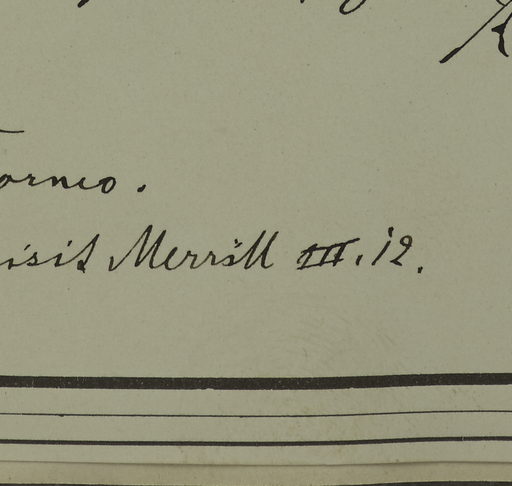 orneo.
isit Merrill III. 12.